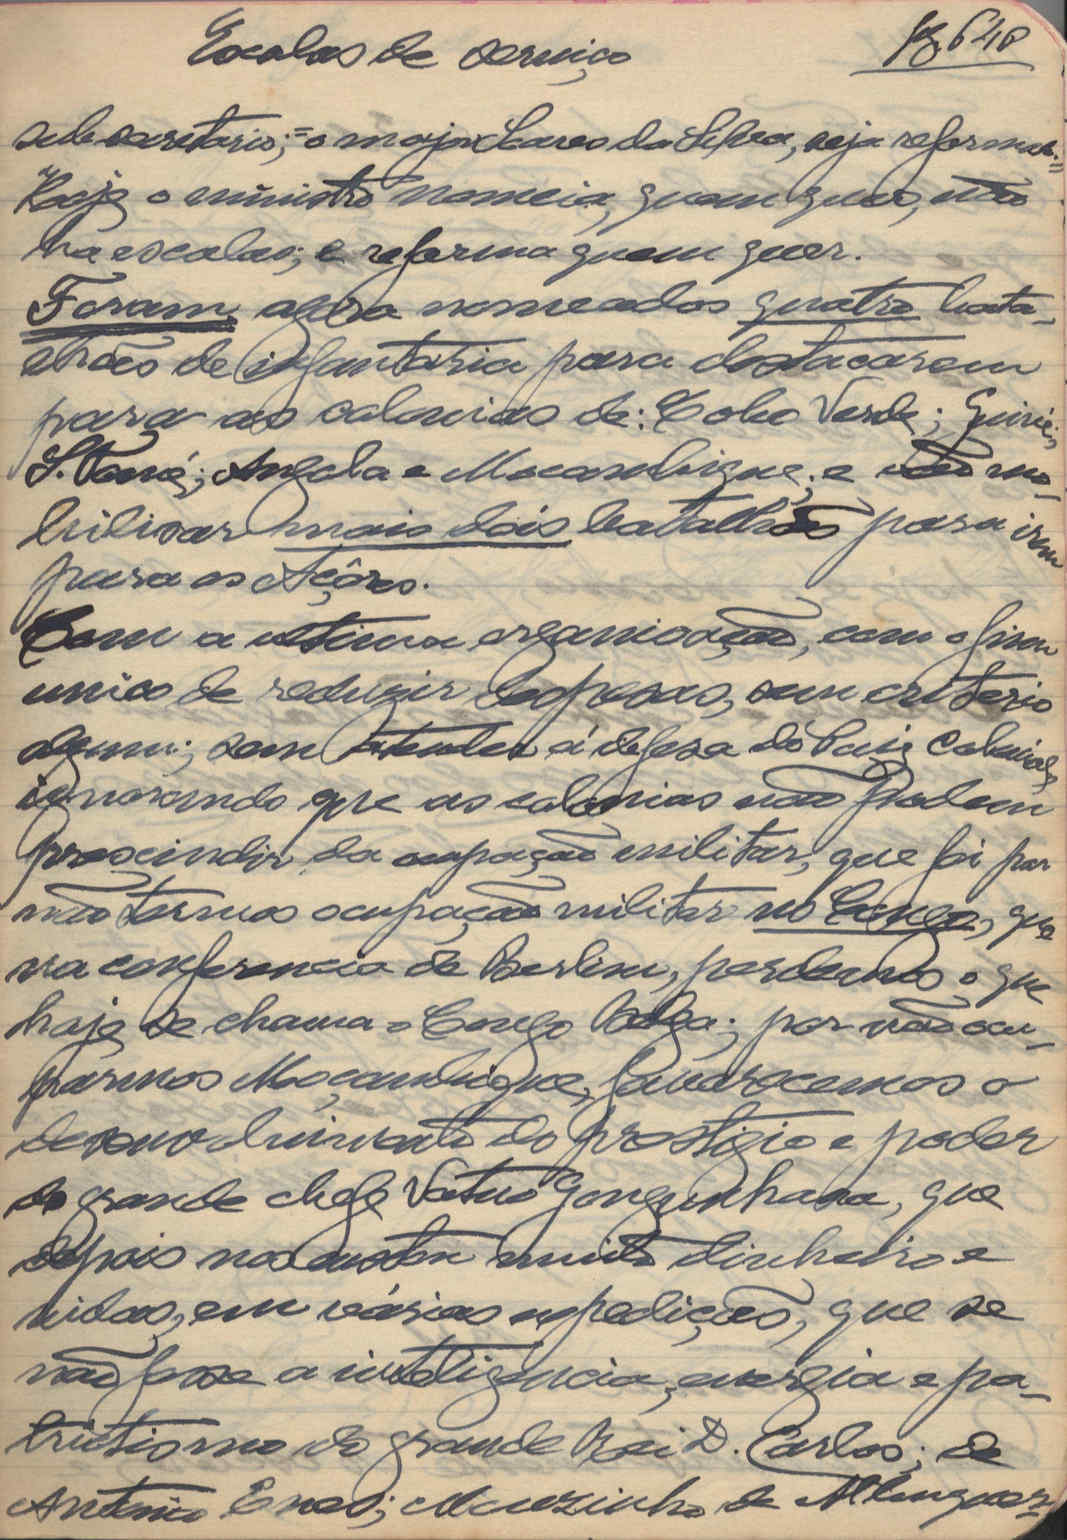 Escalas de serviço
pg 640
sub secretario; = o major Soares da Silva, seja reformado =
Hoje o ministro nomeia, quem quer, não
ha escalas; e reforma quem quer.
Foram agora nomeados quatro bata-
lhões de infantaria para destacarem
para as colonias de: Cabo Verde; Guiné;
S. Tomé; Angola e Moçambique; e vão mo-
bilizar mais dois batalhões para irem
para os Açôres.
Com a ultima organização, com o fim
unico de reduzir despesas, sem criterio
algum; sem atender á defesa do Paiz Colonial,
ignorando que as colonias não podem
prescindir da ocupação militar, que foi por
não termos ocupação militar no Congo, que
na conferencia de Berlim, perdemos o que
hoje se chama o Congo Belga; por não ocu-
parmos Moçambique, favorecemos o
desenvolvimento do prestigio e poder
do grande chefe Vatuo Gongunhana, que
depois nos custou muito dinheiro e
vidas, em várias expedições, que se
não fosse a inteligencia, energia e pa-
triotismo do grande Rei D. Carlos; de
Antonio Enes; Mouzinho de Albuquer-